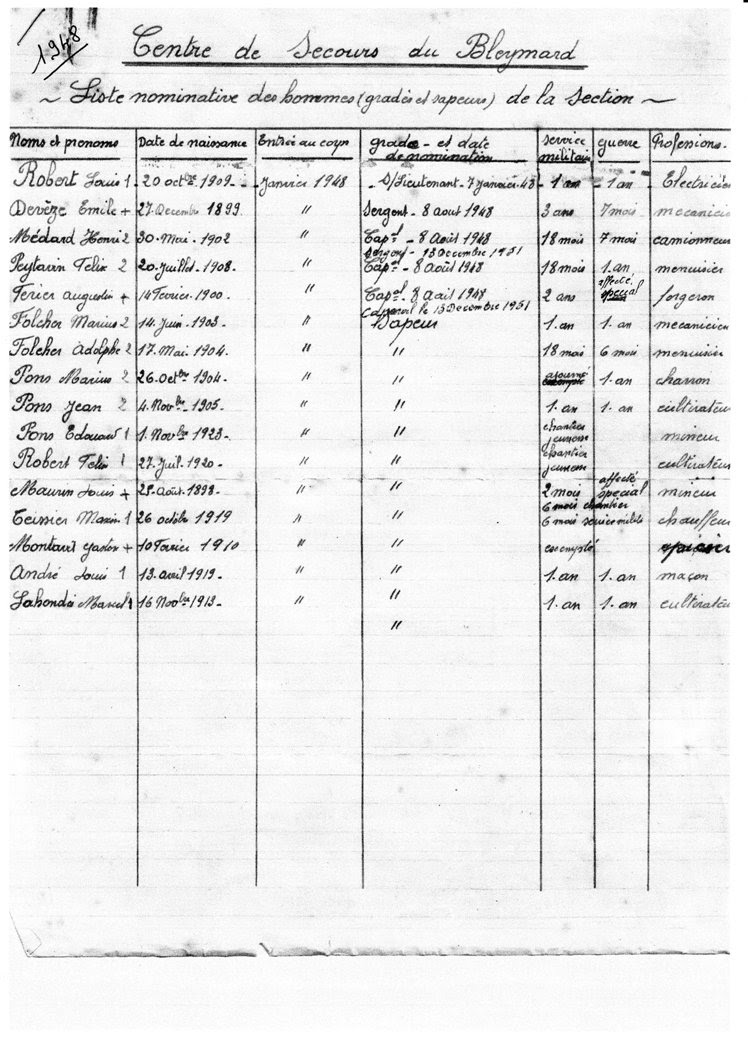 1948
Centre de Secours du Bleymard
~ Liste nominative des hommes (gradés et sapeurs) de la Section ~
Noms et prenoms Date de naissance Entrée au corps grade - et date de nomination service militaire guerre Professions.
Robert Louis 1 20 octbre 1909 - Janvier 1948 S/Lieutenant - 7 Janvier 48 1 an 1 an Electricien
Devèze Emile + 27 Decembre 1899 " Sergent - 8 aout 1948 3 ans 7 mois mecanicie
Médard Henri 2 30 - Mai - 1902 " Capal - 8 Août 1948 18 mois 7 mois camionneur
Sergent - 13 Decembre 1951
Peytavin Felix 2 20 - Juillet - 1908 - " Capal - 8 Août 1948 18 mois 1. an menuisier
Ferier Augustin + 14 Fevrier - 1900 - " Capal - 8 Août 1948 2 ans affecté special forgeron
Caporal le 13 Decembre 1951
Folcher Marius 2 14. Juin - 1903 - " Sapeur 1. an 1. an mecanicien
Folcher Adolphe 2 17. Mai. 1904 - " " 18 mois 6 mois menuisier
Pons Marius 2 26. Octbre 1904 - " " ajourné 1. an charron
Pons Jean 2 4. Novbre - 1905 - " " 1. an 1. an cultivateur
Pons Edouard 1 1. Novbre 1923 - " " chantier jeunesse mineur
Robert Felix 1 27. Juil - 1920 - " " chantier jeunesse cultivateur
Maurin Louis + 25 - Août - 1898 - " " 2 mois affecté special mineur
6 mois chantier
Teissier Marin 1 26 octobre 1919 " " 6 mois service milite chauffeur
Gaston + 10 Fevrier 1910 " " exempté
André Louis 1 13. avril 1913 - " " 1. an 1. an maçon
Lahondès Marcel 1 16 Novbre 1913 - " " 1. an 1. an cultivateur
"